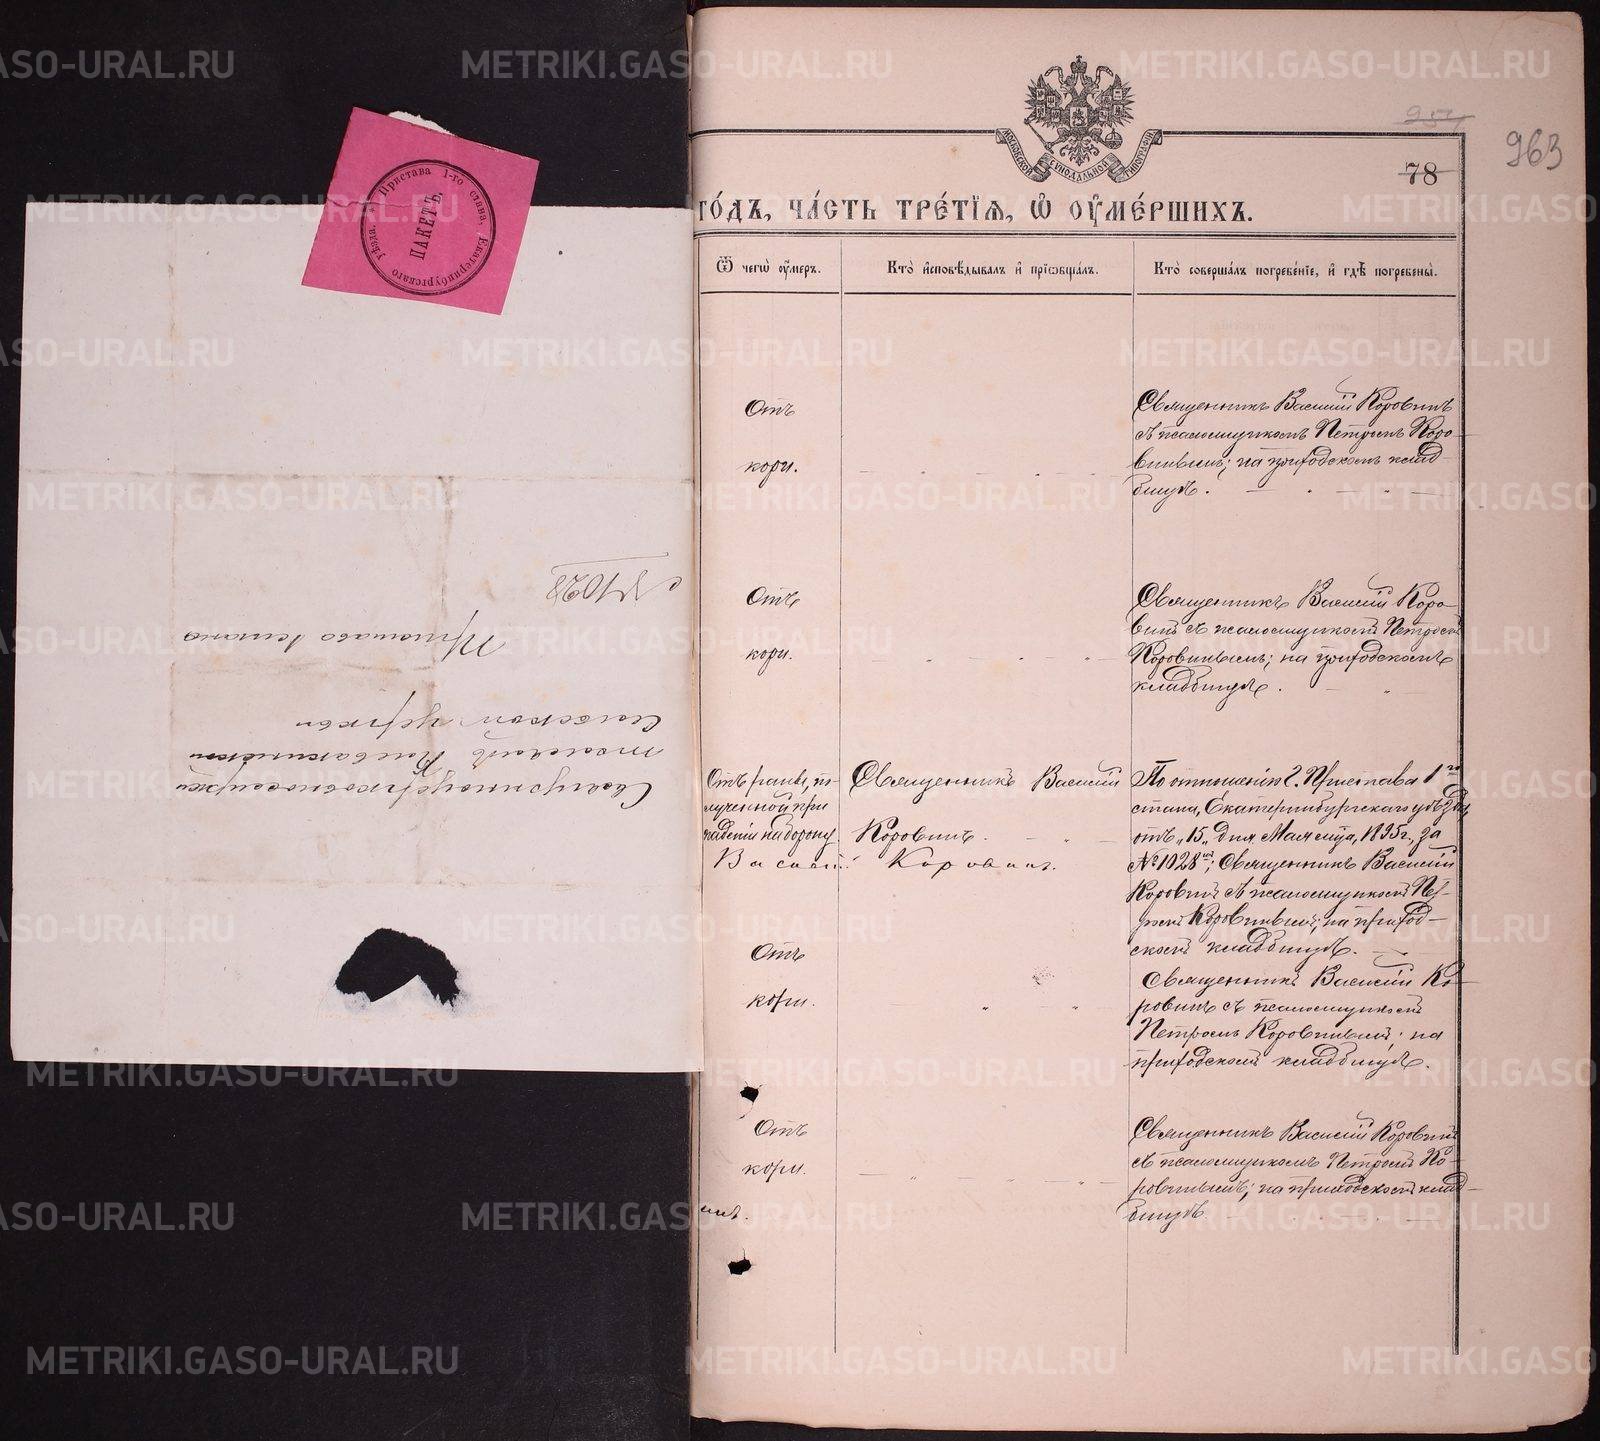 Пристава 1-го стана, Екатеринбургскаго уѣзда.
ПАКЕТЪ.
Священноцерковнослужи
телямъ
Сельской церкви
№ 1028
МОСКОВСКОЙ СѴНОДАЛЬНОЙ ТИПОГРАФІИ
78
963
го́дъ, ча́сть тре́тїѧ, ѡ҆ ᲂу҆ме́ршихъ.
Ѿ чегѡ̀ ᲂу҆́меръ.
Кто̀ и҆сповѣ́дывалъ и҆ прїѡбща́лъ.
Кто̀ соверша́лъ погребе́нїе, и҆ гдѣ̀ погребены̀.
Отъ
кори.
Священникъ Василій Коровинъ
съ псаломщикомъ Петромъ Коро-
винымъ; на приходскомъ клад-
бищѣ.
Отъ
кори.
Священникъ Василій Коро-
винъ съ псаломщикомъ Петромъ
Коровинымъ; на приходскомъ
кладбищѣ.
Отъ раны, по-
лученной при
паденіи на борону.
Священникъ Василій
Коровинъ.
Василій Коровинъ.
По отношенію г. Пристава 1го
стана, Екатеринбургскаго уѣзда,
отъ „15„ дня Мая мѣсяца, 1895 г., за
№ 1028мъ; Священникъ Василій
Коровинъ съ псаломщикомъ Пет-
ромъ Коровинымъ; на приход-
скомъ кладбищѣ.
Отъ
кори.
Священникъ Василій Ко-
ровинъ съ псаломщикомъ
Петромъ Коровинымъ; на
приходскомъ кладбищѣ.
Отъ
кори.
Священникъ Василій Коровинъ
съ псаломщикомъ Петромъ Ко-
ровинымъ; на приходскомъ клад-
бищѣ.
METRIKI.GASO-URAL.RU